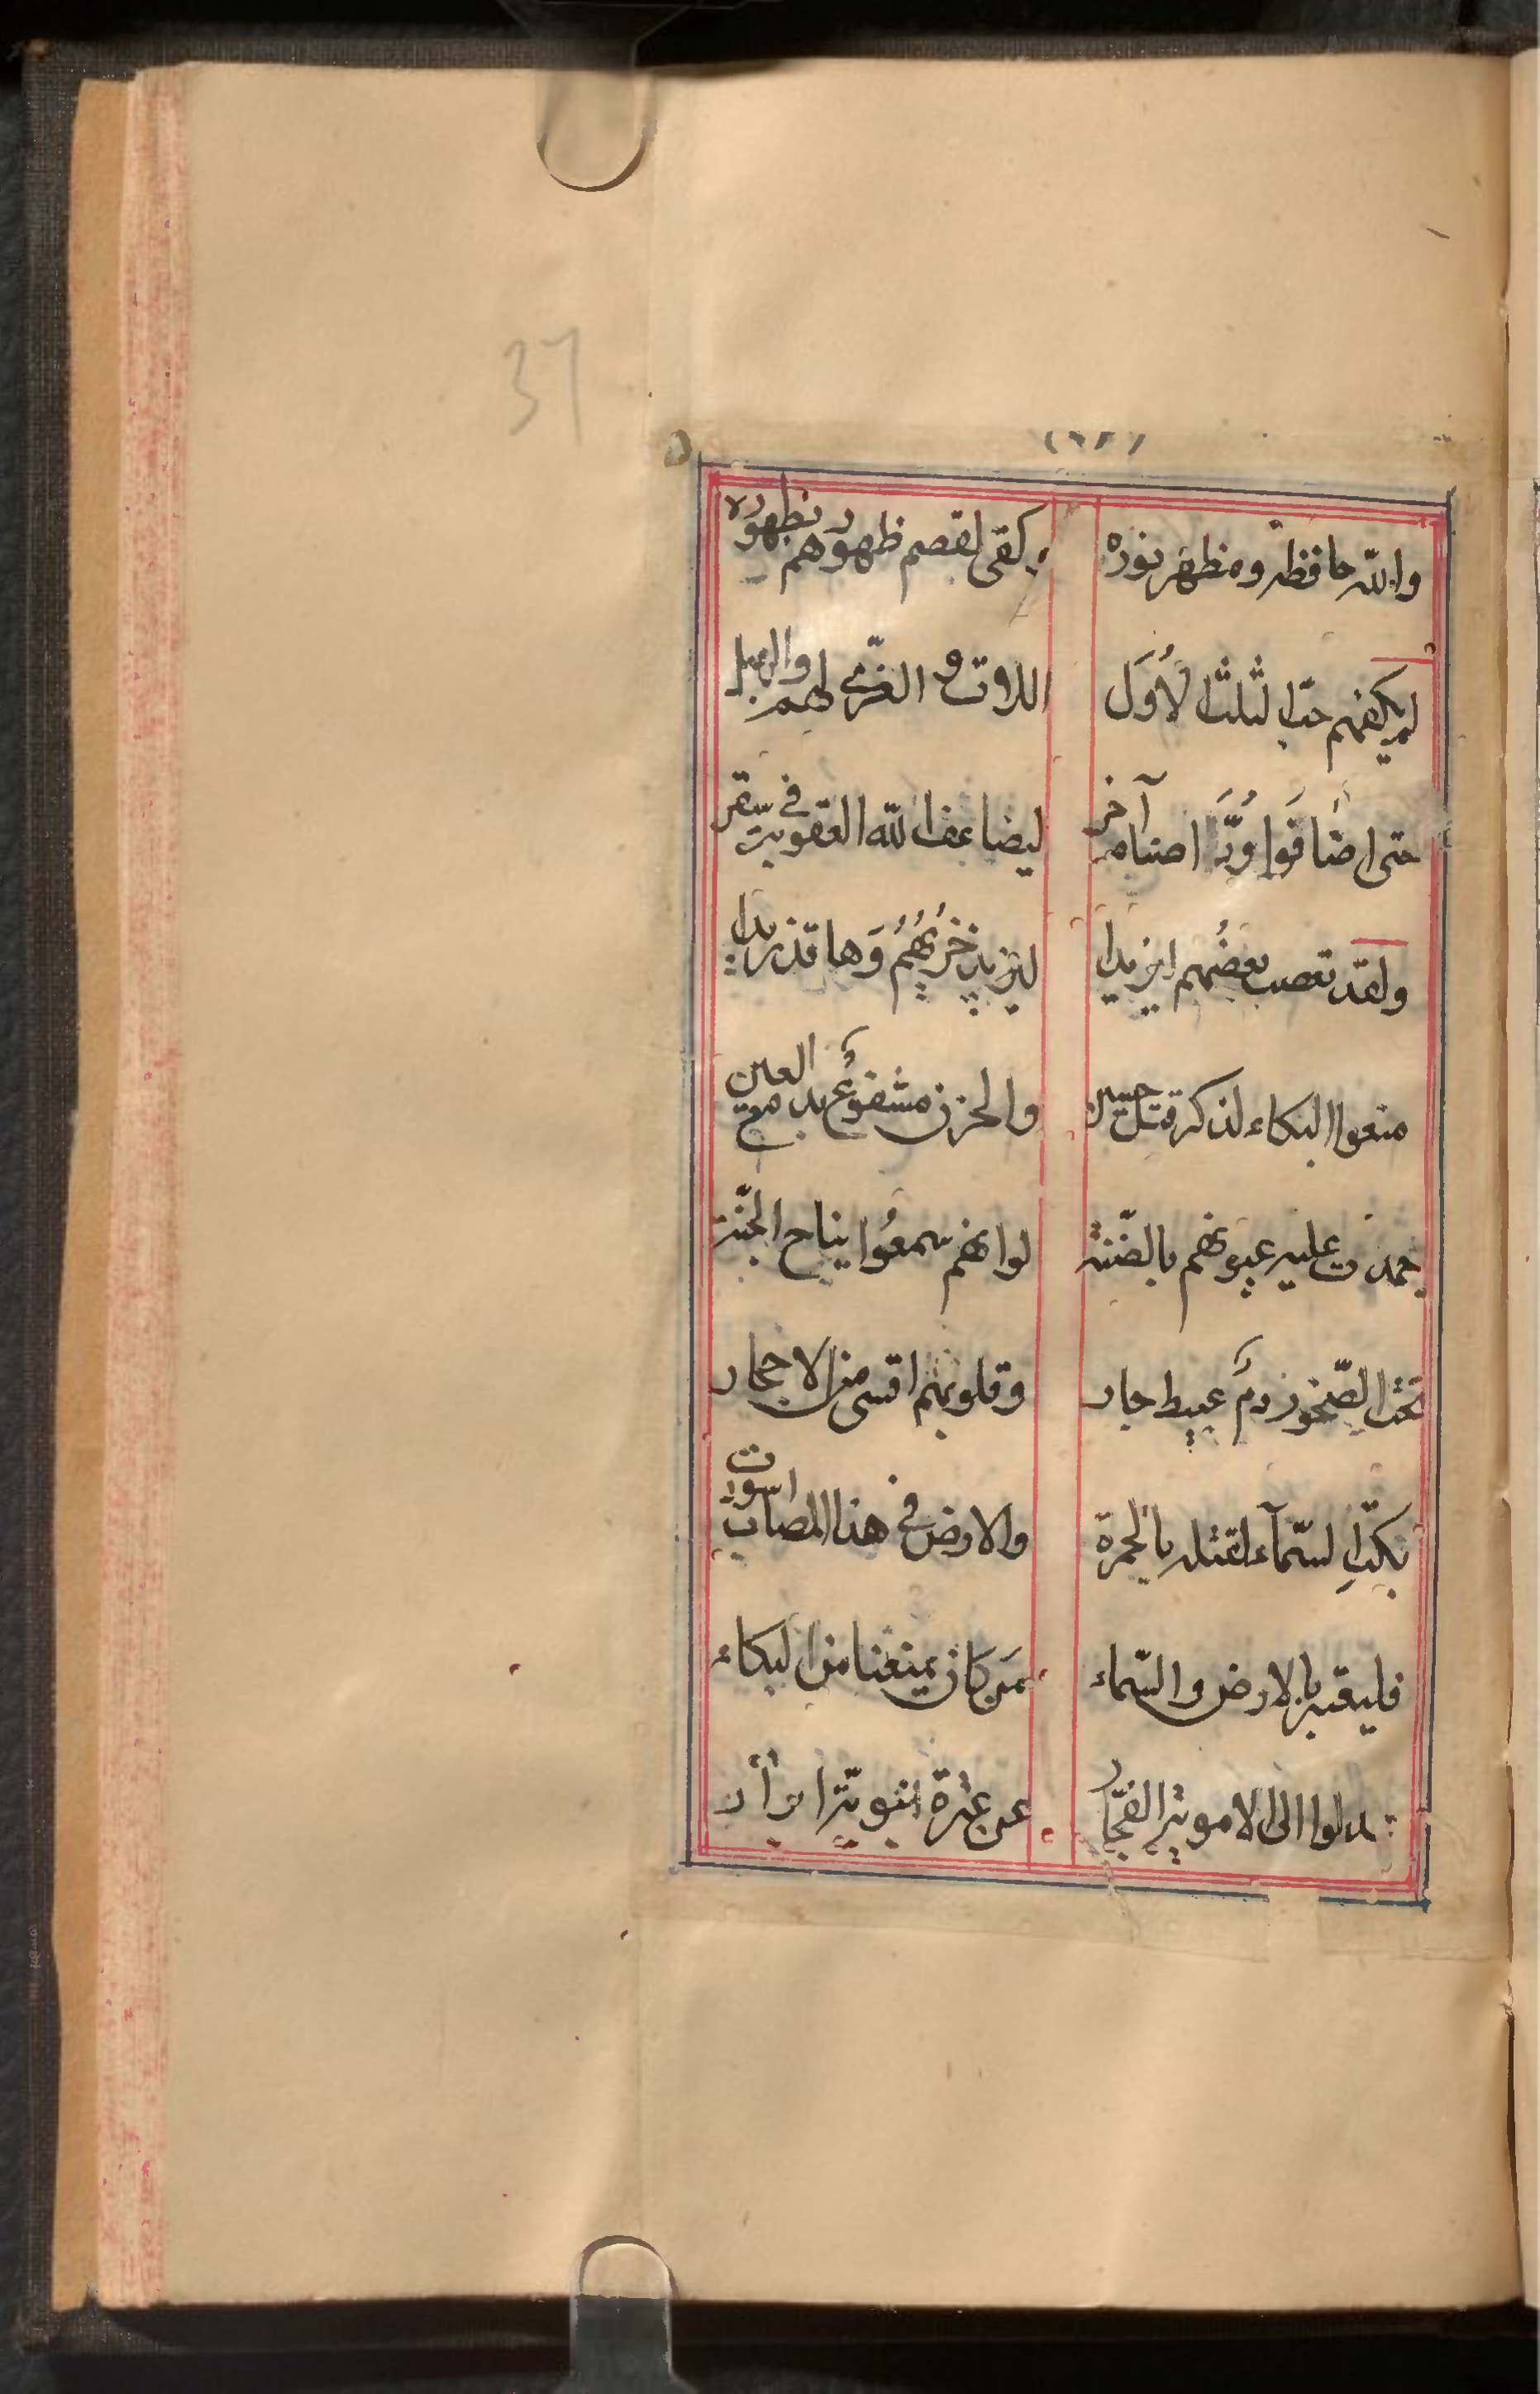 37
والله حافظه ومظهر نوره كفى لقصم ظهورهم بظهوره
لم يكفهم حب الثلث الأوَل اللات و العزّى لهم والهبل
حتى اضافَوا وُدَّ اصنام آخر ليضاعف الله العقوبة في سقر
ولقد تعصب بعضُهم ليزيدا ليزيد خزيُهُمُ وَها قد زيدا
منعوا البكاء لذكر قتل حسين والحزن مشفوعٌ بدمع العين
جمدت عليه عيونهم بالضّنة لو انهم سمعُوا نياح الجنّة
تحت الصّخور دمٌ عبيط جار وقلوبهم اقسى من الاحجار
بكتِ السّمآء لقتله بالحمرة والارض في هذا المصاب اسوت
فليقبر بالارض والسّماء مَن كان يمنعنا من البكاء
عدلوا الى الاموية الفجّار عن عترة نبوية ابرار